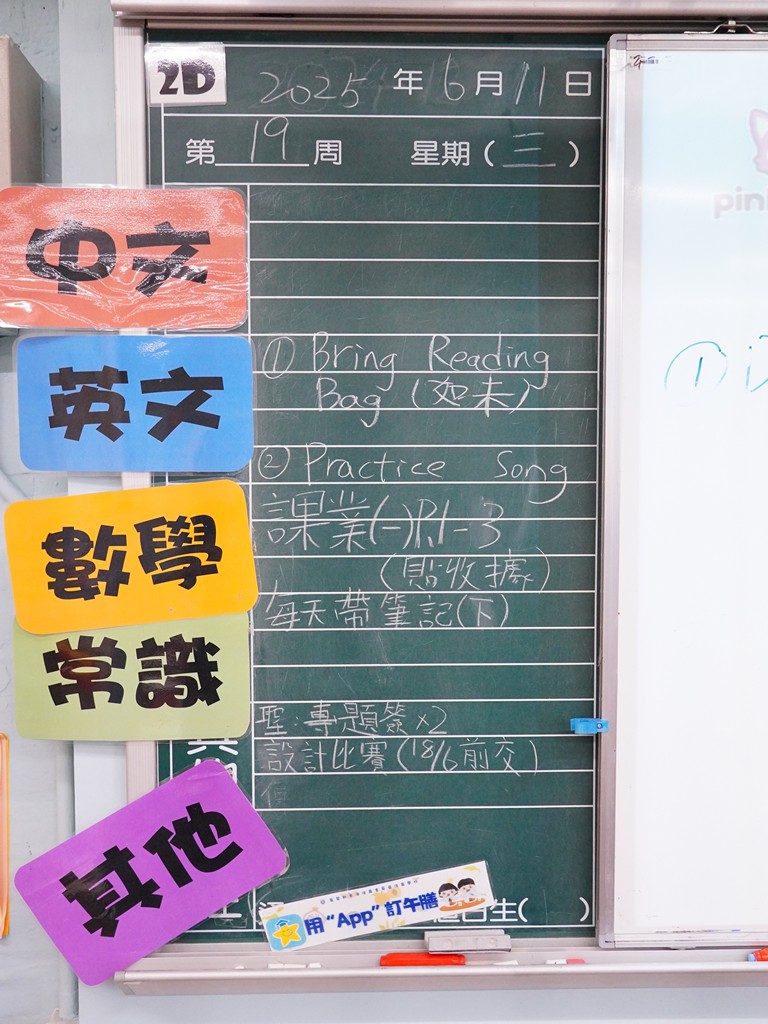 2D
2025 年 6 月 11 日
第 19 周 星期 ( 三 )
中文
英文
① Bring Reading
Bag (如未)
② Practice Song
數學
課業(一)P.1-3
(貼收據)
每天帶筆記(下)
常識
聖:專題簽×2
設計比賽(18/6前交)
其他
用“App”訂午膳
生( )
pin
①